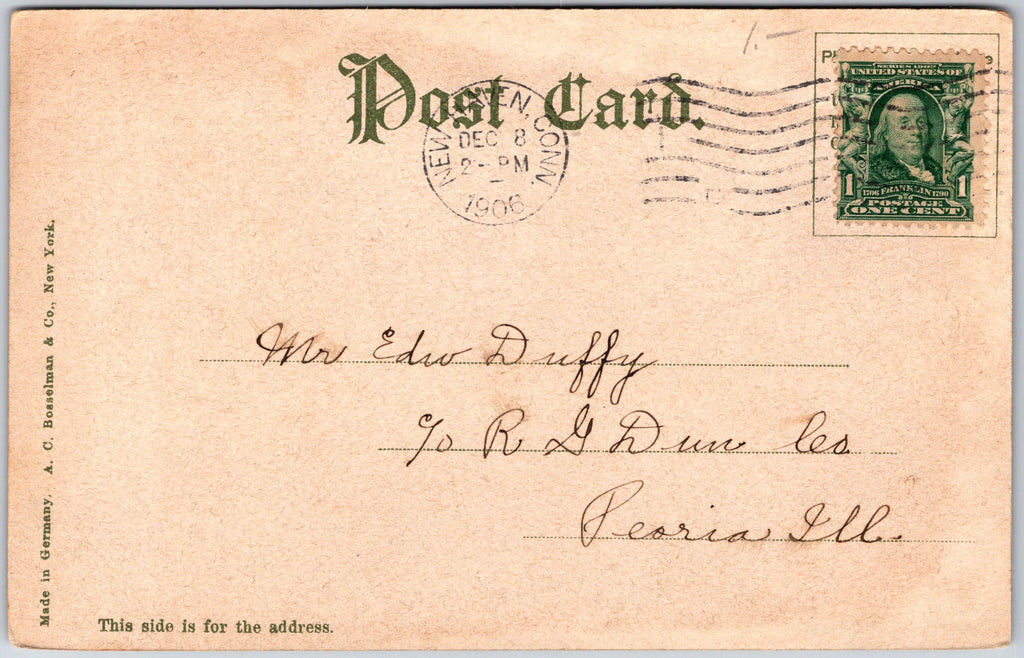 1.—
Post Card.
NEW HAVEN, CONN.
DEC 8
2- PM
1906
SERIES 1902
UNITED STATES OF
AMERICA
1 1
1706 FRANKLIN 1790
POSTAGE
ONE CENT
Mr Edw Duffy
c/o R G Dun Co
Peoria Ill.
Made in Germany. A. C. Bosselman & Co., New York.
This side is for the address.